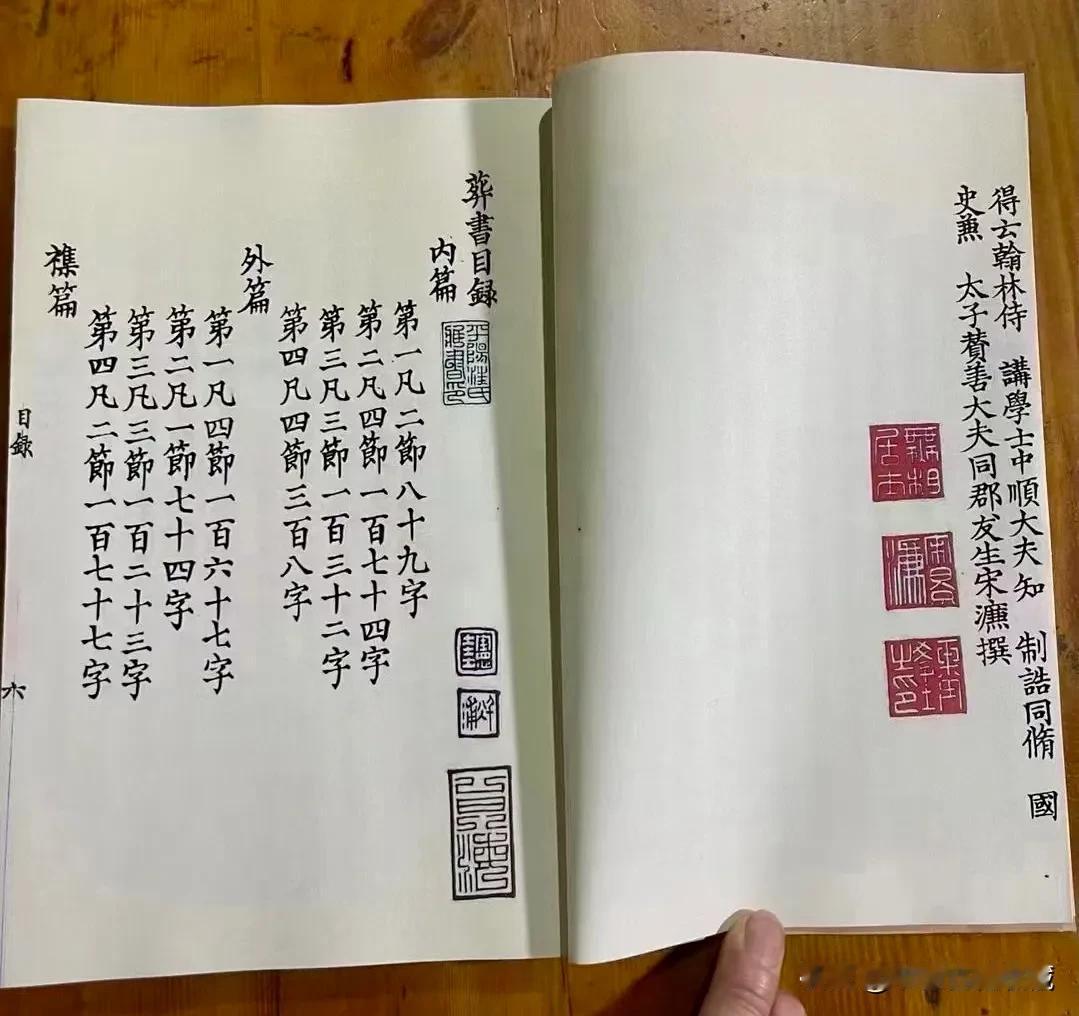 得云翰林侍 講學士中順大夫知 制誥同脩 國
史兼 太子賛善大夫同郡友生宋濂撰
無相居士
葬書目録
平陽汪氏藏書印
内篇
第一凡二節八十九字
第二凡四節一百七十四字
第三凡三節一百三十二字
第四凡四節三百八字
外篇
第一凡四節一百六十七字
第二凡一節七十四字
第三凡三節一百二十三字
第四凡二節一百七十七字
襍篇
目録
六